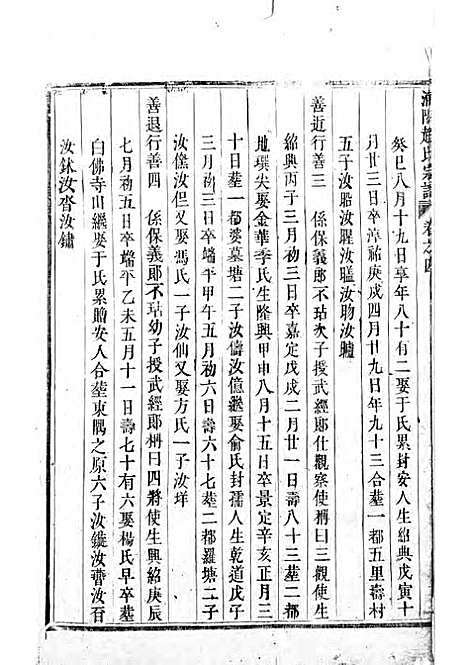 浦陽趙氏宗譜 卷之四
癸巳八月十九日享年八十有二娶于氏累封安人生紹興戊寅十
月廿三日卒淳祐庚戌四月廿九日年九十三合塟一都五里壽村
五子汝胎汝腥汝䐛汝肳汝臚
善近行善三 係保義郎不玷次子授武經郎仕觀察使稱曰三觀使生
紹興丙子三月初三日卒嘉定戊戌二月廿一日壽八十三塟二都
地墺尖娶金華季氏生隆興甲申八月十五日卒景定辛亥正月三
十日塟一都婆墓塘二子汝儔汝億繼娶俞氏封孺人生乾道戊子
三月初三日卒端平甲午五月初六日壽六十七塟二都羅塘二子
汝儻汝但又娶馮氏一子汝仙又娶方氏一子汝垟
善退行善四 係保義郎不玷幼子授武經郎稱曰四將使生興紹庚辰
七月初五日卒端平乙未五月十一日壽七十有六娶楊氏早卒塟
白佛寺山繼娶于氏累贈安人合塟東隅之原六子汝鏇汝瞢汝百
汝鈢汝沓汝鏽